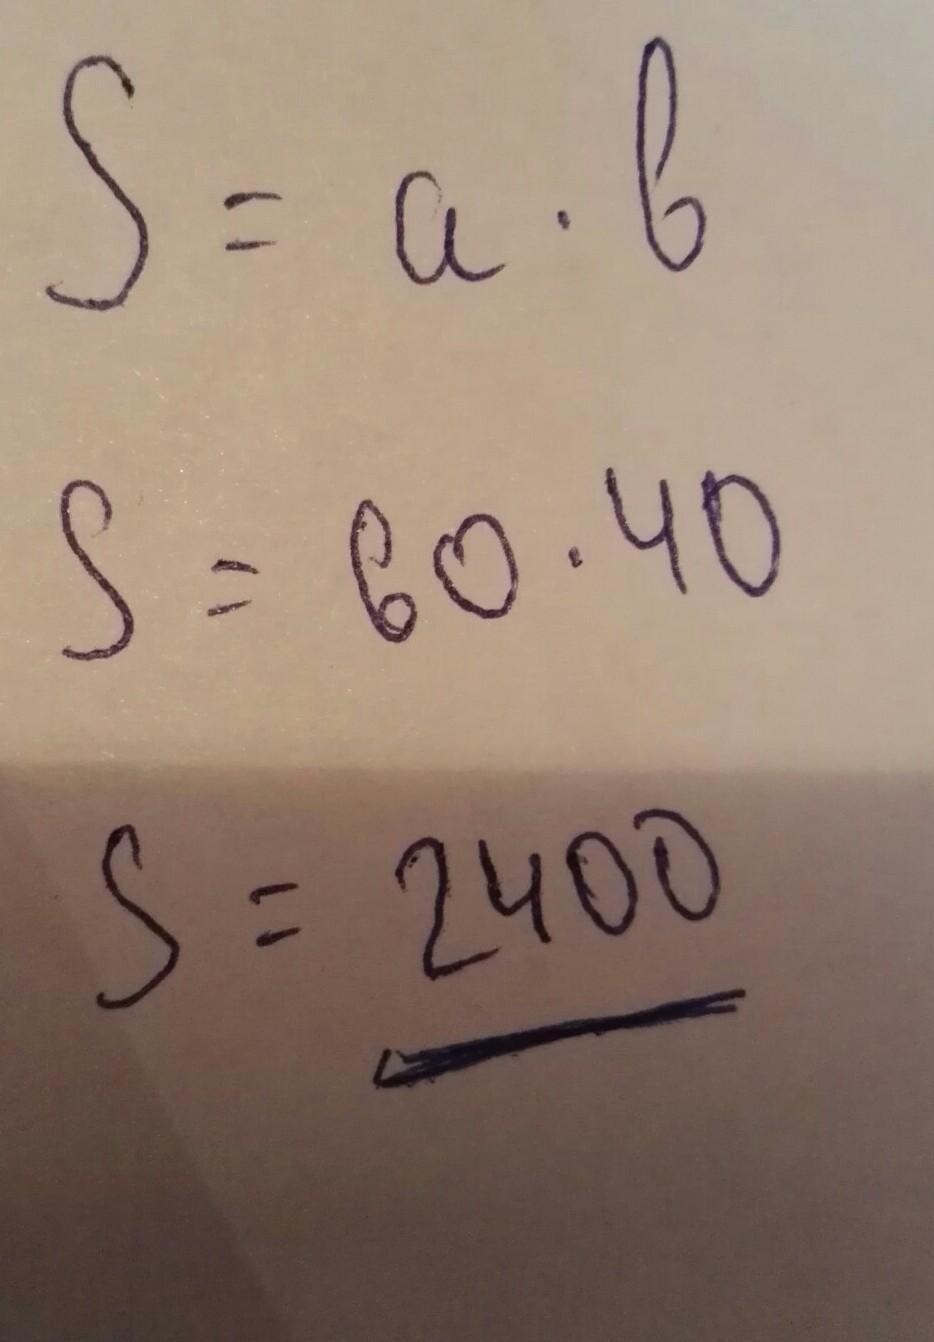 S = a · b
S = 60 · 40
S = 2400